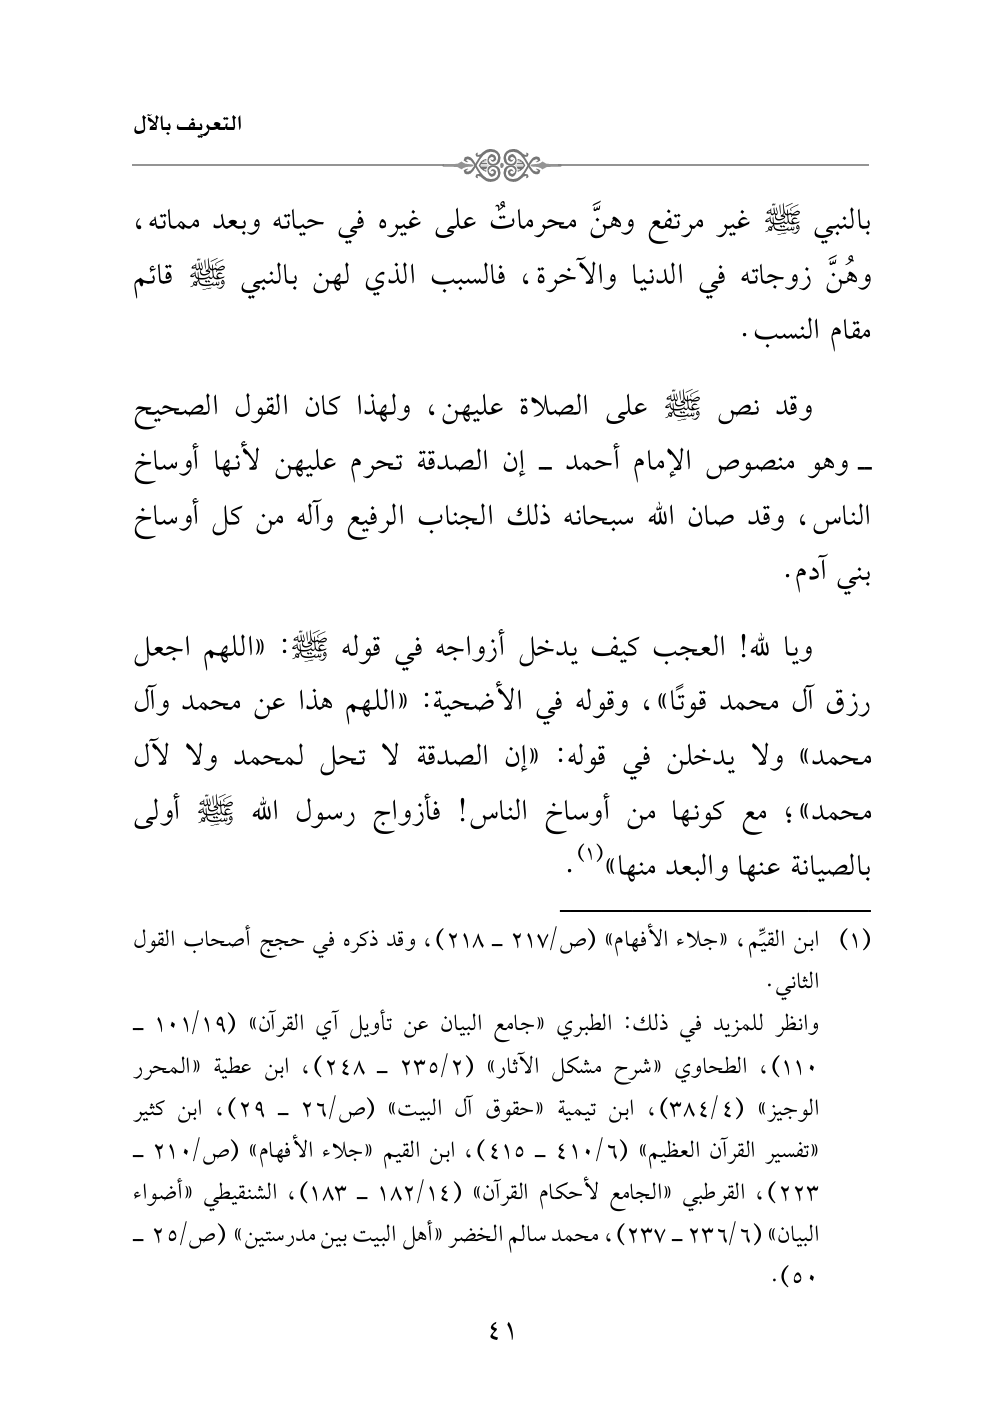 التعريف بالآل
بالنبي ﷺ غير مرتفع وهنَّ محرماتٌ على غيره في حياته وبعد مماته،
وهُنَّ زوجاته في الدنيا والآخرة، فالسبب الذي لهن بالنبي ﷺ قائم
مقام النسب.
وقد نص ﷺ على الصلاة عليهن، ولهذا كان القول الصحيح
ـ وهو منصوص الإمام أحمد ـ إن الصدقة تحرم عليهن لأنها أوساخ
الناس، وقد صان الله سبحانه ذلك الجناب الرفيع وآله من كل أوساخ
بني آدم.
ويا لله! العجب كيف يدخل أزواجه في قوله ﷺ: «اللهم اجعل
رزق آل محمد قوتًا»، وقوله في الأضحية: «اللهم هذا عن محمد وآل
محمد» ولا يدخلن في قوله: «إن الصدقة لا تحل لمحمد ولا لآل
محمد»؛ مع كونها من أوساخ الناس! فأزواج رسول الله ﷺ أولى
بالصيانة عنها والبعد منها»(١).
(١) ابن القيِّم، «جلاء الأفهام» (ص/٢١٧ ـ ٢١٨)، وقد ذكره في حجج أصحاب القول
الثاني.
وانظر للمزيد في ذلك: الطبري «جامع البيان عن تأويل آي القرآن» (١٠١/١٩ ـ
١١٠)، الطحاوي «شرح مشكل الآثار» (٢٣٥/٢ ـ ٢٤٨)، ابن عطية «المحرر
الوجيز» (٣٨٤/٤)، ابن تيمية «حقوق آل البيت» (ص/٢٦ ـ ٢٩)، ابن كثير
«تفسير القرآن العظيم» (٤١٠/٦ ـ ٤١٥)، ابن القيم «جلاء الأفهام» (ص/٢١٠ ـ
٢٢٣)، القرطبي «الجامع لأحكام القرآن» (١٨٢/١٤ ـ ١٨٣)، الشنقيطي «أضواء
البيان» (٢٣٦/٦ ـ ٢٣٧)، محمد سالم الخضر «أهل البيت بين مدرستين» (ص/٢٥ ـ
٥٠).
٤١